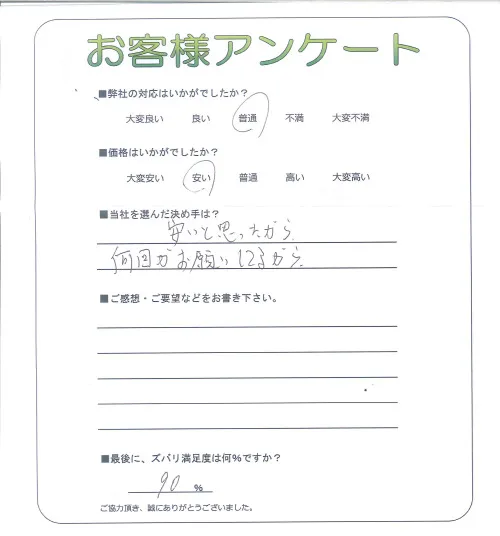 お客様アンケート
■弊社の対応はいかがでしたか?
大変良い 良い 普通 不満 大変不満
■価格はいかがでしたか?
大変安い 安い 普通 高い 大変高い
■当社を選んだ決め手は?
安いと思ったから
何回かお願いしてるから
■ご感想・ご要望などをお書き下さい。
■最後に、ズバリ満足度は何%ですか?
90 %
ご協力頂き、誠にありがとうございました。